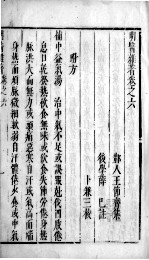 明醫雜著卷之六
鄞人王節齋集
後學薛己註
卜兼三
附方
補中益氣湯 治中氣不足或誤服尅伐四肢倦
怠口乾發熱飲食無味或飲食失節勞倦身熱
脉洪大而無力或頭痛惡寒自汗或氣高而喘
身熱而煩脉微細軟弱自汗體倦少食或中氣